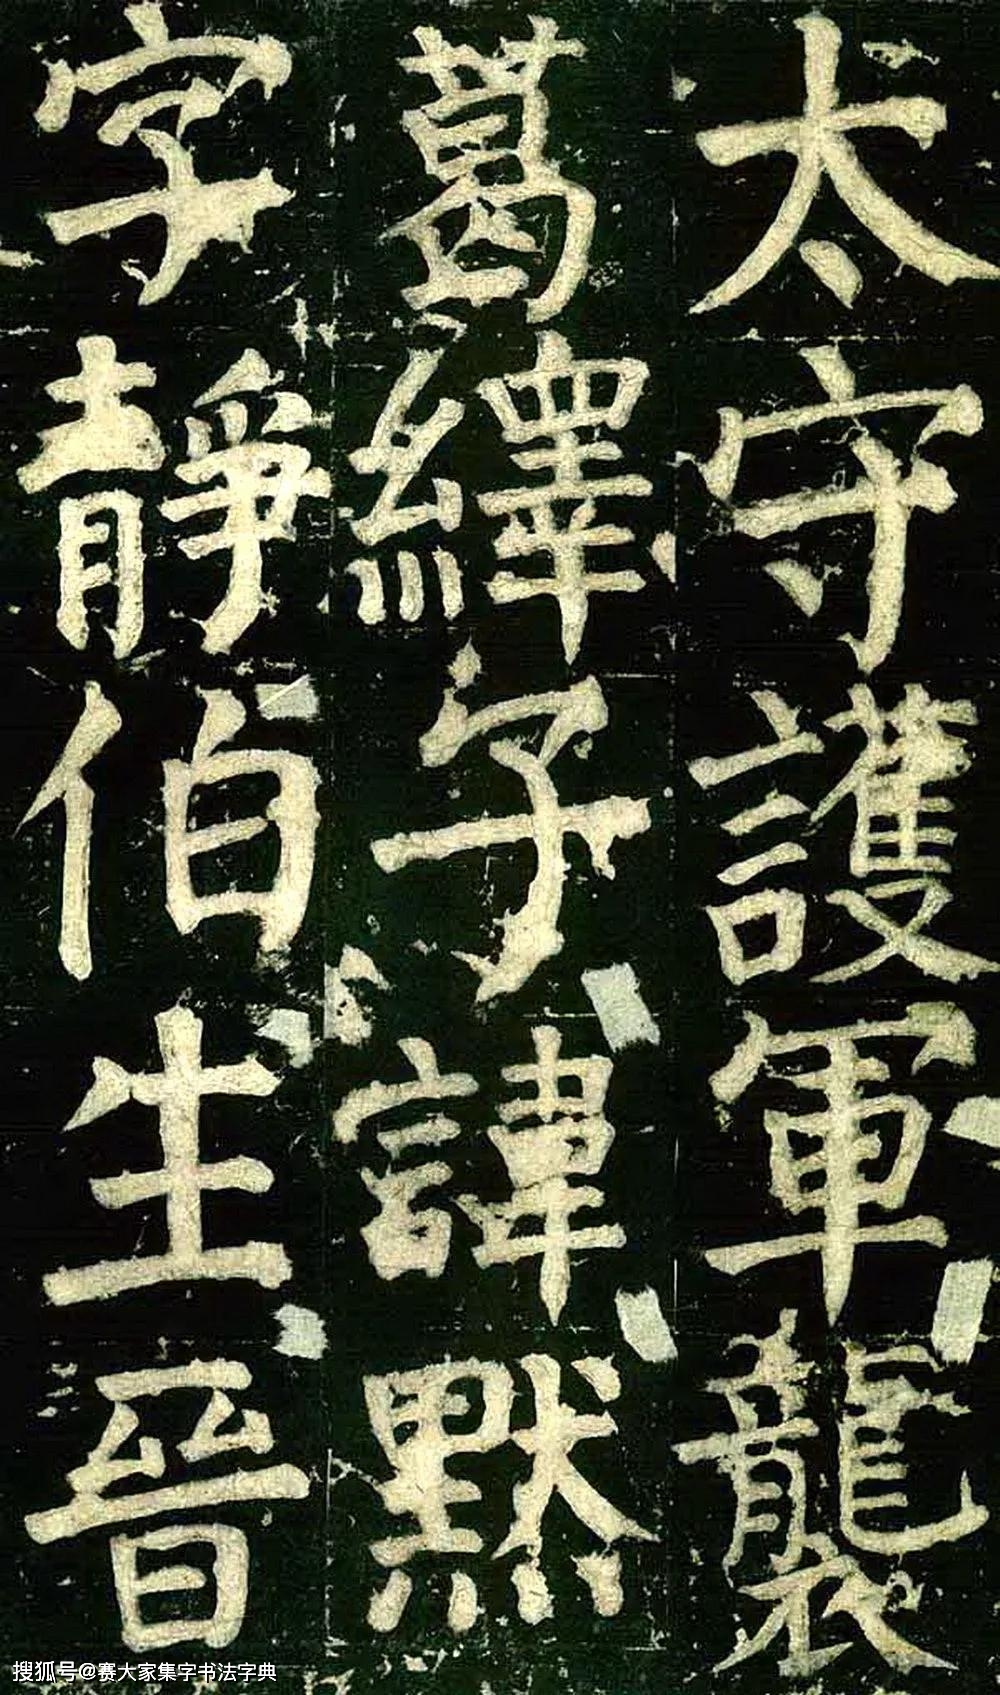 太守護軍襲
葛繹子諱默
字靜伯生晉
搜狐号@赛大家集字书法字典